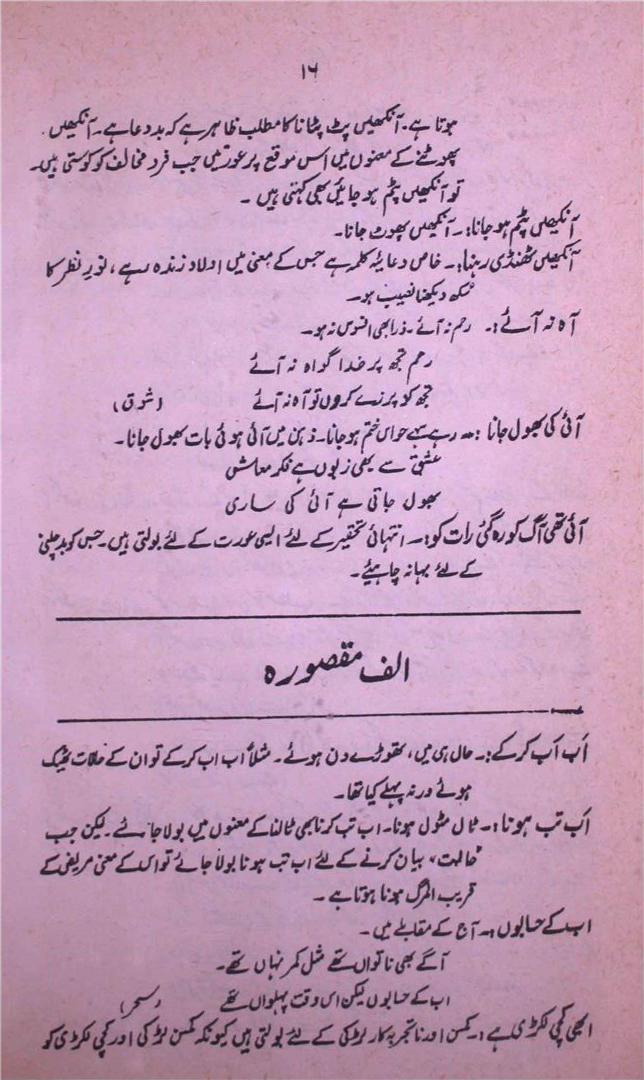 ۱۶
ہوتا ہے۔ آنکھیں پٹ پٹانا کا مطلب ظاہر ہے کہ بددعا ہے۔ آنکھیں
پھوٹنے کے معنوں میں اس موقع پر عورتیں جب فرد مخالف کو کوستی ہیں۔
تو آنکھیں پٹم ہو جائیں بھی کہتی ہیں۔
آنکھیں پٹم ہو جانا:۔ آنکھیں پھوٹ جانا۔
آنکھیں ٹھنڈی رہنا:۔ خاص دعائیہ کلمہ ہے جس کے معنی میں اولاد زندہ رہے، نورِ نظر کا
سکھ دیکھنا نصیب ہو۔
آہ نہ آئے:۔ رحم نہ آئے۔ ذرا بھی افسوس نہ ہو۔
رحم تجھ پر خدا گواہ نہ آئے
تجھ کو پرزے کروں تو آہ نہ آئے (شوق)
آئی کی بھول جانا:۔ رہے سہے حواس ختم ہو جانا۔ ذہن میں آئی ہوئی بات بھول جانا۔
عشق سے بھی زبوں ہے فکر معاش
بھول جاتی ہے آئی کی ساری
آئی تھی آگ کو رہ گئی رات کو:۔ انتہائی تحقیر کے لئے ایسی عورت کے لئے بولتی ہیں۔ جس کو بدچلنی
کے لئے بہانہ چاہیئے۔
الف مقصورہ
اَب اَب کر کے:۔ حال ہی میں، تھوڑے دن ہوئے۔ مثلاً اب اب کر کے تو ان کے حالات ٹھیک
ہوئے ورنہ پہلے کیا تھا۔
اَب تب ہونا:۔ ٹال مٹول ہونا۔ اب تب کرنا بھی ٹالنا کے معنوں میں بولا جائے۔ لیکن جب
"حالت" بیان کرنے کے لئے اب تب ہونا بولا جائے تو اس کے معنی مریض کے
قریب المرگ ہونا ہوتا ہے۔
اب کے حسابوں:۔ آج کے مقابلے میں۔
آگے بھی ناتواں تھے مثل کمر نہاں تھے۔
اب کے حسابوں لیکن اس وقت پہلواں تھے (سحر)
ابھی کچی لکڑی ہے:۔ کمسن اور ناتجربہ کار لڑکی کے لئے بولتی ہیں کیونکہ کمسن لڑکی اور کچی لکڑی کو